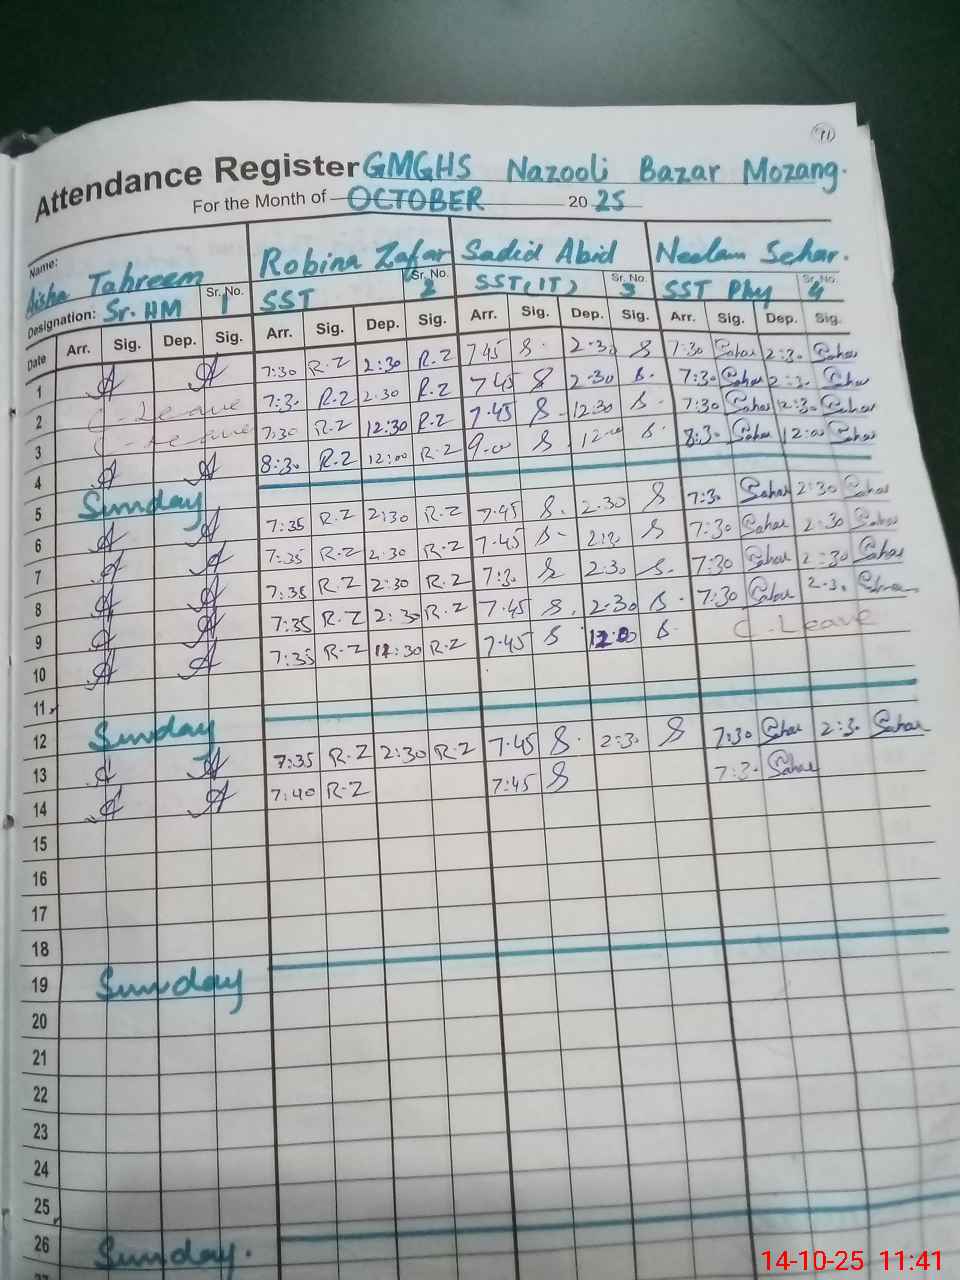 91
Attendance Register GMGHS Nazooli Bazar Mozang.
For the Month of OCTOBER 20 25
Name: Aisha Tahreem Robina Zafar Sadid Abid Neelam Sehar.
Designation: Sr. HM Sr. No. 1 SST Sr. No. 2 SST(IT) Sr. No. 3 SST Phy Sr. No. 4
Date Arr. Sig. Dep. Sig. Arr. Sig. Dep. Sig. Arr. Sig. Dep. Sig. Arr. Sig. Dep. Sig.
1 A A 7:30 R-Z 2:30 R.Z 7 45 S. 2:30 S 7:30 Sahar 2:30 Sahar
2 C-Leave 7:30 R.Z 2.30 R.Z 7 45 S 2.30 S. 7:30 Sahar 2:30 Sahar
3 C-Leave 7:30 R-Z 12:30 R.Z 7.45 S. 12:30 S. 7:30 Sahar 12:30 Sahar
4 A A 8:30 R.Z 12:00 R-Z 9.00 S. 12.00 S. 8:30 Sahar 12:00 Sahar
5 Sunday
6 A A 7:35 R-Z 2:30 R-Z 7.45 S. 2.30 S 7:30 Sahar 2:30 Sahar
7 A A 7:35 R-Z 2.30 R-Z 7.45 S- S 7:30 Sahar 2:30 Sahar
8 A A 7:35 R-Z 2:30 R-Z 7:30 S 2:30 S. 7:30 Sahar 2:30 Sahar
9 A A 7:35 R-Z 2:30 R-Z 7.45 S. 2.30 S. 7:30 Sahar 2.30
10 A A 7:35 R-Z 12:30 R-Z 7.45 S S. C-Leave
11
12 Sunday
13 A A 7:35 R-Z 2:30 R-Z 7.45 S. 2:30 S 7:30 Sahar 2:30 Sahar
14 A A 7:40 R-Z 7:45 S 7:30 Sahar
15
16
17
18
19 Sunday
20
21
22
23
24
25
26 Sunday.
14-10-25 11:41